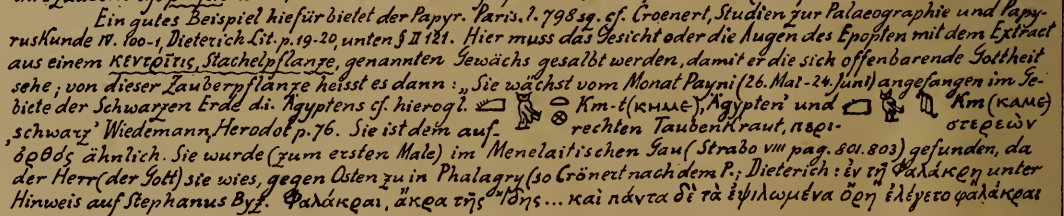 Ein gutes Beispiel hiefür bietet der Papyr. Paris. l. 798 sq. cf. Croenert, Studien zur Palaeographie und Papy-
ruskunde IV. 100-1, Dieterich Lit. p. 19-20, unten § II 121. Hier muss das Gesicht oder die Augen des Epopten mit dem Extract
aus einem κεντρῖτις, Stachelpflanze, genannten Gewächs gesalbt werden, damit er die sich offenbarende Gottheit
sehe; von dieser Zauberpflanze heisst es dann: „Sie wächst vom Monat Payni (26. Mai-24. Juni) angefangen im Ge-
biete der Schwarzen Erde d.i. Ägyptens cf. hierogl. Km-t (ⲕⲏⲙⲉ), Ägypten' und Km (ⲕⲁⲙⲉ)
‚schwarz' Wiedemann, Herodot p. 76. Sie ist dem auf- rechten Taubenkraut, περι- στερεὼν
‚ὀρθός ähnlich. Sie wurde (zum ersten Male) im Menelaitischen Gau (Strabo VIII pag. 801. 803) gefunden, da
der Herr (der Gott) sie wies, gegen Osten zu in Phalagry (so Crönert nach dem P.; Dieterich: ἐν τῇ Φαλάκρῃ unter
Hinweis auf Stephanus Byz. Φαλάκραι, ἄκρα τῆς Ἴδης... καὶ πάντα δὲ τὰ ἐψιλωμένα ὄρη ἐλέγετο φαλάκραι